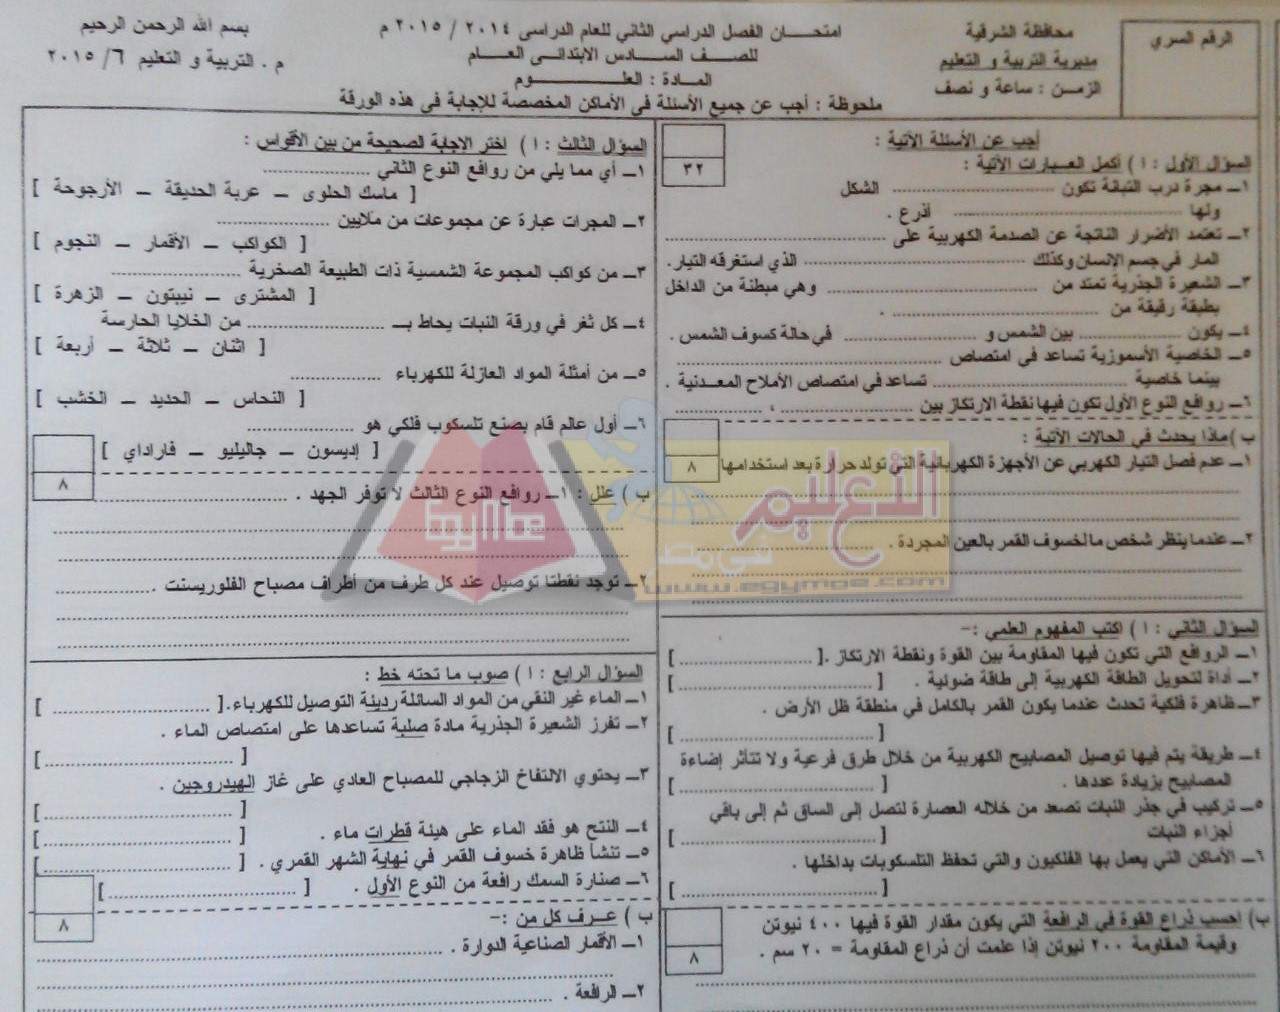 الرقم السري
محافظة الشرقية
مديرية التربية و التعليم
الزمــن : ساعة و نصف
امتحـــان الفصل الدراسي الثاني للعام الدراسى ٢٠١٤ / ٢٠١٥ م
للصــف الســادس الابتدائــى العــام
المــادة : العلـــــــوم
ملحوظة : أجب عن جميع الأسئلة فى الأماكن المخصصة للإجابة فى هذه الورقة
بسم الله الرحمن الرحيم
م . التربية و التعليم ٦/ ٢٠١٥
أجب عن الأسئلة الآتية :
٣٢
السؤال الأول : ١ ) أكمل العــبارات الآتية :
١ــ مجرة درب التبانة تكون .................... الشكل
ولها .................... أذرع .
٢ــ تعتمد الأضرار الناتجة عن الصدمة الكهربية على ....................
المار في جسم الإنسان وكذلك .................... الذي استغرقه التيار.
٣ــ الشعيرة الجذرية تمتد من .................... وهي مبطنة من الداخل
بطبقة رقيقة من .................... .
٤ــ يكون .................... بين الشمس و .................... في حالة كسوف الشمس .
٥ــ الخاصية الأسموزية تساعد في امتصاص ....................
بينما خاصية .................... تساعد في امتصاص الأملاح المعدنية .
٦ــ روافع النوع الأول تكون فيها نقطة الارتكاز بين .................... ، ....................
ب ) ماذا يحدث في الحالات الآتية :
٨
١ــ عدم فصل التيار الكهربي عن الأجهزة الكهربائية التي تولد حرارة بعد استخدامها
٢ــ عندما ينظر شخص ما لخسوف القمر بالعين المجردة . ....................
السؤال الثاني : ١ ) اكتب المفهوم العلمي :-
١ــ الروافع التي تكون فيها المقاومة بين القوة ونقطة الارتكاز .[ .................... ]
٢ــ أداة لتحويل الطاقة الكهربية إلى طاقة ضوئية . [ .................... ]
٣ــ ظاهرة فلكية تحدث عندما يكون القمر بالكامل في منطقة ظل الأرض .
[ .................... ]
٤ــ طريقة يتم فيها توصيل المصابيح الكهربية من خلال طرق فرعية ولا تتأثر إضاءة
المصابيح بزيادة عددها . [ .................... ]
٥ــ تركيب في جذر النبات تصعد من خلاله العصارة لتصل إلى الساق ثم إلى باقي
أجزاء النبات [ .................... ]
٦ــ الأماكن التي يعمل بها الفلكيون والتي تحفظ التلسكوبات بداخلها .
[ .................... ]
ب) احسب ذراع القوة في الرافعة التي يكون مقدار القوة فيها ٤٠٠ نيوتن
وقيمة المقاومة ٢٠٠ نيوتن إذا علمت أن ذراع المقاومة = ٢٠ سم .
٨
السؤال الثالث : ١ ) اختر الإجابة الصحيحة من بين الأقواس :
١ــ أي مما يلي من روافع النوع الثاني ....................
[ ماسك الحلوى ــ عربة الحديقة ــ الأرجوحة ]
٢ــ المجرات عبارة عن مجموعات من ملايين ....................
[ الكواكب ــ الأقمار ــ النجوم ]
٣ــ من كواكب المجموعة الشمسية ذات الطبيعة الصخرية ....................
[ المشترى ــ نيبتون ــ الزهرة ]
٤ــ كل ثغر في ورقة النبات يحاط بـ .................... من الخلايا الحارسة
[ اثنان ــ ثلاثة ــ أربعة ]
٥ــ من أمثلة المواد العازلة للكهرباء ....................
[ النحاس ــ الحديد ــ الخشب ]
٦ــ أول عالم قام بصنع تلسكوب فلكي هو ....................
[ إديسون ــ جاليليو ــ فاراداي ]
٨
ب ) علل : ١ــ روافع النوع الثالث لا توفر الجهد . ....................
٢ــ توجد نقطتا توصيل عند كل طرف من أطراف مصباح الفلوريسنت . ....................
السؤال الرابع : ١ ) صوب ما تحته خط :
١ــ الماء غير النقي من المواد السائلة رديئة التوصيل للكهرباء.[ .................... ]
٢ــ تفرز الشعيرة الجذرية مادة صلبة تساعدها على امتصاص الماء .
[ .................... ]
٣ــ يحتوي الانتفاخ الزجاجي للمصباح العادي على غاز الهيدروجين .
[ .................... ]
٤ــ النتح هو فقد الماء على هيئة قطرات ماء . [ .................... ]
٥ــ تنشأ ظاهرة خسوف القمر في نهاية الشهر القمري . [ .................... ]
٦ــ صنارة السمك رافعة من النوع الأول . [ .................... ]
ب ) عــرف كل من :-
٨
١ــ الأقمار الصناعية الدوارة . ....................
٢ــ الرافعة . ....................
التعليم
في مصر
www.egymoe.com